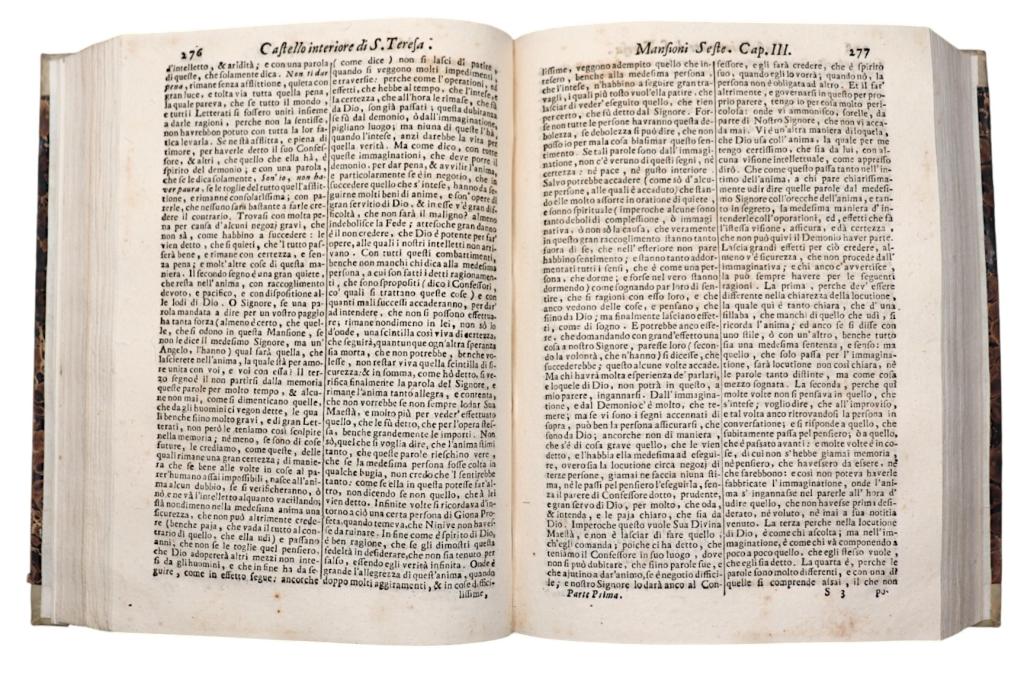 276
Castello interiore di S. Teresa.
d'intelletto, & aridità; e con una parola
di queste, che solamente dica. Non ti dar
pena, rimane senza afflittione, quieta con
gran luce, e tolta via tutta quella pena,
la quale pareva, che se tutto il mondo,
e tutti i Letterati si fossero uniti insieme
a darle ragioni, perche non la sentisse,
non havrebbon potuto con tutta la lor fa-
tica levarla. Se ne stà afflitta, e piena di
timore, per haverle detto il suo Confes-
sore, & altri, che quello che ella hà, è
spirito del demonio; e con una parola,
che se le dica solamente, Son'io, non ha-
ver paura, se le toglie del tutto quell'afflit-
tione, e rimane consolatissima; con pa-
rerle, che nessuno sarà bastante a farle cre-
dere il contrario. Trovasi con molta pe-
na per causa d'alcuni negozj gravi, che
non sà, come habbino a succedere: le
vien detto, che si quieti, che'l tutto pas-
serà bene, e rimane con certezza, e sen-
za pena; e molt'altre cose di questa ma-
niera. Il secondo segno è una gran quiete,
che resta nell'anima, con raccoglimento
devoto, e pacifico, e con dispositione al-
le lodi di Dio. O Signore, se una pa-
rola mandata a dire per un vostro paggio
hà tanta forza (almeno è certo, che quel-
le, che si odono in questa Mansione, se
non le dice il medesimo Signore, ma un'
Angelo, l'hanno) qual sarà quella, che
lascierete nell'anima, la quale stà per amo-
re unita con voi, e voi con essa? Il ter-
zo segno è il non partirsi dalla memoria
queste parole per molto tempo, & alcu-
ne non mai, come si dimenticano quelle,
che da gli huomini ci vegon dette, le qua-
li benche sino molto gravi, e di gran Let-
terati, non però le teniamo così scolpite
nella memoria; nè meno, se sono di cose
future, le crediamo, come queste, delle
quali rimane una gran certezza; di manie-
ra che se bene alle volte in cose al pa-
rer'humano assai impossibili, nasce all'ani-
ma alcun dubbio, se si verificheranno, ò
nò, e ne và l'intelletto alquanto vacillando;
stà nondimeno nella medesima anima una
sicurezza, che non può altrimente crede-
re (benche paja, che vada il tutto al con-
trario di quello, che ella udì) e passano
anni, che non se le toglie quel pensiero,
che Dio adopererà altri mezzi non inte-
si da gli huomini, e che in fine ha da se-
guire, come in effetto segue; ancorche
( come dico ) non si lasci di patire,
quando si veggono molti impedimenti,
e traversie: perche come l'operationi, ed
effetti, che hebbe al tempo, che l'intese, e
la certezza, che all'hora le rimase, che sia
da Dio, son già passati, questa dubitanza
se fù dal demonio, ò dall'immaginatione,
pigliano luogo; ma niuna di queste l'hà,
quando l'intese, anzi darebbe la vita per
quella verità. Ma come dico, con tutte
queste immaginationi, che deve porre il
demonio, per dar pena, & avvilir l'anima,
e particolarmente se è in negotio, che in
succedere quello che s'intese, hanno da se-
guirne molti beni di anime, e son'opere di
gran servitio di Dio, & in esse v'è gran dif-
ficoltà, che non farà il maligno? almeno
indebolisce la Fede; attesoche gran danno
è il non credere, che Dio è potente per far'
opere, alle quali i nostri intelletti non arri-
vano. Con tutti questi combattimenti,
benche non manchi chi dica alla medesima
persona, a cui son fatti i detti ragionamen-
ti, che sono spropositi (dico i Confessori,
co' quali si trattano queste cose) e con
quanti mali successi accaderanno, per dar'
ad intendere, che non si possono effettua-
re, rimane nondimeno in lei, non sò io
d'onde, una scintilla così viva di certezza,
che seguirà, quantunque ogn'altra speranza
sia morta, che non potrebbe, benche vo-
lesse, non restar viva quella scintilla di si-
curezza: & in somma, come hò detto, si ve-
rifica finalmente la parola del Signore, e
rimane l'anima tanto allegra, e contenta,
che non vorrebbe se non sempre lodar Sua
Maestà, e molto più per veder'effettuato
quello, che le fù detto, che per l'opera stes-
sa, benche grandemente le importi. Non
sò, quel che si voglia dire, che l'anima stimi
tanto, che queste parole rieschino vere,
che se la medesima persona fosse colta in
qualche bugia, non credo che'l sentirebbe
tanto: come se ella in questa potesse far'al-
tro, non dicendo se non quello, che à lei
vien detto. Infinite volte si ricordava d'in-
torno a ciò una certa persona di Giona Pro-
feta, quando temeva, che Ninive non haves-
se da ruinare. In fine come è spirito di Dio,
è ben ragione, che se gli dimostri questa
fedeltà in desiderare, che non sia tenuto per
falso, essendo egli verità infinita. Onde è
grande l'allegrezza di quest'anima, quando
doppo molti aggiramenti, & in cose diffici-
lissime,
Mansioni Seste. Cap. III.
277
lissime, veggono adempito quello che in-
tesero, benche alla medesima persona,
che l'intese, n'habbino a seguire gran tra-
vagli, i quali più tosto vuol'ella patire, che
lasciar di veder'eseguito quello, che tien
per certo, che fù detto dal Signore. For-
se non tutte le persone havranno questa de-
bolezza, se debolezza si può dire, che non
posso io per mala cosa biasimar questo sen-
timento. Se tali parole sono dall'immagi-
natione, non c'è veruno di questi segni, nè
certezza: nè pace, nè gusto interiore.
Salvo potrebbe accadere (come sò d'alcu-
ne persone, alle quali è accaduto) che stan-
do elle molto assorte in oratione di quiete,
e sonno spirituale (imperoche alcune sono
tanto deboli di complessione, ò immagi-
nativa, ò non sò la causa, che veramente
in questo gran raccoglimento stanno tanto
fuora di se, che nell' esteriore non pare
habbino sentimento; e stanno tanto addor-
mentati tutti i sensi, che è come una per-
sona, che dorme; e forse nel vero stanno
dormendo) come sognando par loro di sen-
tire, che si ragioni con esso loro, e che
anco vedono delle cose, e pensano, che
siino da Dio; ma finalmente lasciano effet-
ti, come di sogno. E potrebbe anco esse-
re, che domandando con grand'effetto una
cosa a nostro Signore, paresse loro (secon-
do la volontà, che n'hanno) si dicesse, che
succederebbe; questo alcune volte accade.
Ma chi havrà molta esperienza de' parlari,
e loquele di Dio, non potrà in questo, a
mio parere, ingannarsi. Dall' immagina-
tione, e dal Demonio c'è molto, che te-
mere; ma se vi sono i segni accennati di
sopra, può ben la persona assicurarsi, che
sono da Dio; ancorche non di maniera,
che s'è di cosa grave quello, che le vien
detto, e l'habbia ella medesima ad esegui-
re, overo sia la locutione circa negozj di
terze persone, giamai ne faccia niuna sti-
ma, nè le passi pel pensiero l'eseguirla, sen-
za il parere di Confessore dotto, prudente,
e gran servo di Dio, per molto, che oda,
& intenda, e le paja chiaro, che sia da
Dio. Imperoche questo vuole Sua Divina
Maestà, e non è lasciar di fare quello,
ch'egli comanda; poiche ci hà detto, che
teniamo il Confessore in suo luogo, dove
non si può dubitare, che siino parole sue, e
che ajutino a dar'animo, se è negotio diffici-
le; e nostro Signore lo darà anco al Con-
fessore, e gli farà credere, che è spirito
suo, quando egli lo vorrà; quando nò, la
persona non è obligata ad altro. Et il far'
altrimente, e governarsi in questo per pro-
prio parere, tengo io per cosa molto peri-
colosa: onde vi ammonisco, sorelle, da
parte di Nostro Signore, che non vi acca-
da mai. Vi è un'altra maniera di loquela,
che Dio usa coll'anima, la quale per me
tengo certissimo, che sia da lui, con al-
cuna visione intellettuale, come appresso
dirò. Che come questa passa tanto nell'in-
timo dell'anima, a chi pare chiarissima-
mente udir dire quelle parole dal medesi-
mo Signore coll'orecche dell'anima, e tan-
to in segreto, la medesima maniera d' in-
tenderle coll'operationi, ed, effetti che fà
l'istessa visione, assicura, e dà certezza,
che non può quivi il Demonio haver parte.
Lascia grandi effetti per ciò credere, al-
meno v'è sicurezza, che non procede dall'
immaginativa; e chi anco c'avvertisce,
la può sempre havere per le seguenti
ragioni. La prima, perche dev' essere
differente nella chiarezza della locutione,
la quale quì è tanto chiara, che d' una
sillaba, che manchi di quello che udì, si
ricorda l'anima; ed anco se fù disse con
uno stile, ò con un'altro, benche tutto
sia una medesima sentenza, e senso: ma
quello, che solo passa per l' immagina-
tione, sarà locutione non così chiara, nè
le parole tanto distinte, ma come cosa
mezzo sognata. La seconda, perche quì
molte volte non si pensava in quello, che
s'intese; voglio dire, che all'improviso,
e tal volta anco ritrovandosi la persona in
conversatione; e si risponde a quello, che
subitamente passa pel pensiero; ò a quello,
che è passato avanti: e molte volte è in co-
se, di cui non s'hebbe giamai memoria,
nè pensiero, che havessero da essere, nè
che sarebbono: e così non poteva haverle
fabbricate l' immaginatione, onde l'ani-
ma s' ingannasse nel parerle all'hora d'
udire quello, che non havesse prima desi-
derato, nè voluto, nè mai a sua notitia
venuto. La terza perche nella locutione
di Dio, è come chi ascolta; ma nell'im-
maginatione, è come chi và componendo a
poco a poco quello, che egli stesso vuole,
che egli sia detto. La quarta è, perche le
parole sono molto differenti, e con una di
quelle si comprende assai, il che non
Parte Prima.
S 3
po-